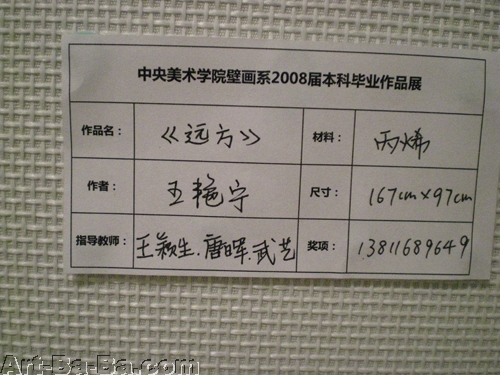 中央美术学院壁画系2008届本科毕业作品展
作品名： 《远方》 材料： 丙烯
作者： 王艳宁 尺寸： 167cm×97cm
指导教师： 王颖生.唐晖.武艺 奖项： 13811689649
Art-Ba-Ba.com